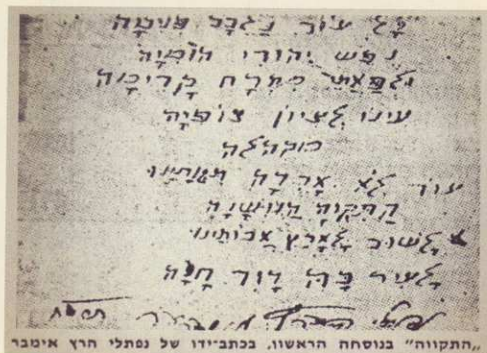 כָּל עוֹד בַּלֵּבָב פְּנִימָה
נֶפֶשׁ יְהוּדִי הוֹמִיָּה
וּלְפַאֲתֵי מִזְרָח קָדִימָה
עינו לציון צוֹפִיָּה
עוֹד לֹא אָבְדָה תִּקְוָתֵנוּ
הַתִּקְוָה הַנּוֹשָׁנָה
לָשׁוּב לְאֶרֶץ אֲבוֹתֵינוּ
לְעִיר בָּהּ דָּוִד חָנָה
נפתלי הרץ אימבר
„התקווה" בנוסחה הראשון, בכתב־ידו של נפתלי הרץ אימבר